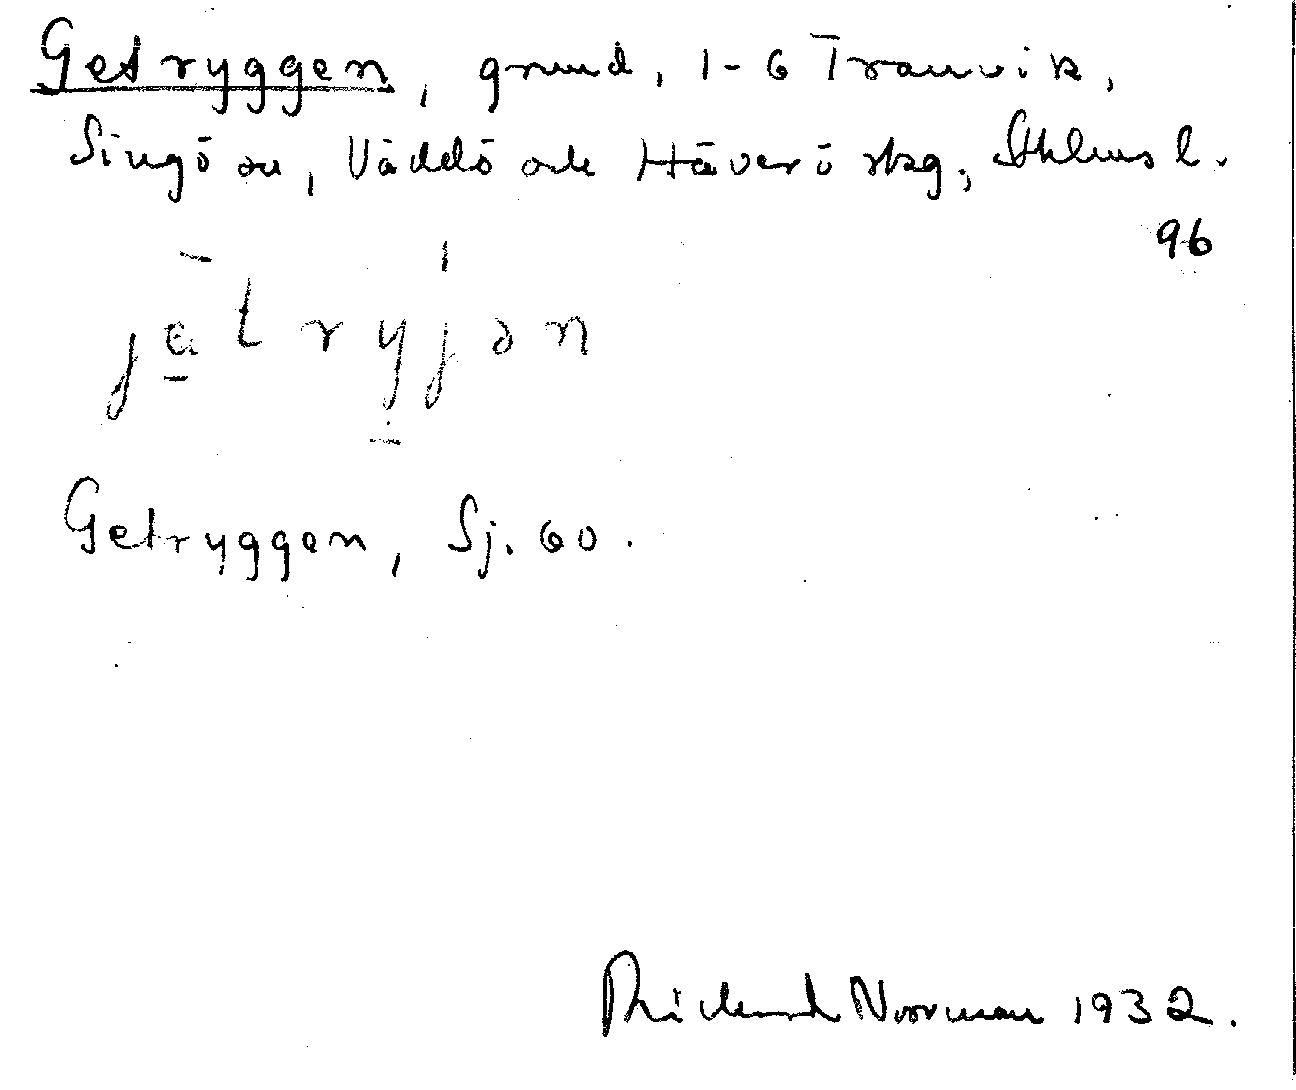 Getryggen, grund, 1-6 Tranvik,
Singö sn, Väddö och Häverö skg, Sthlms l.
96
jätryjən
Getryggen, Sj. 60.
Rickard Norrman 1932.